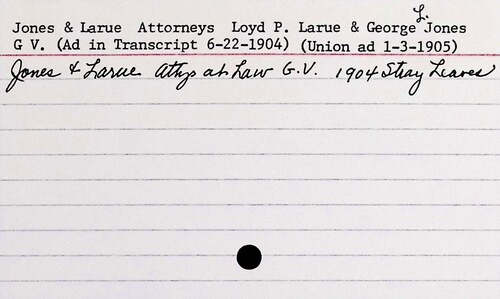 Jones & Larue Attorneys Loyd P. Larue & George L. Jones
G V. (Ad in Transcript 6-22-1904) (Union ad 1-3-1905)
Jones & Larue Attys at Law G.V. 1904 Stray Leaves